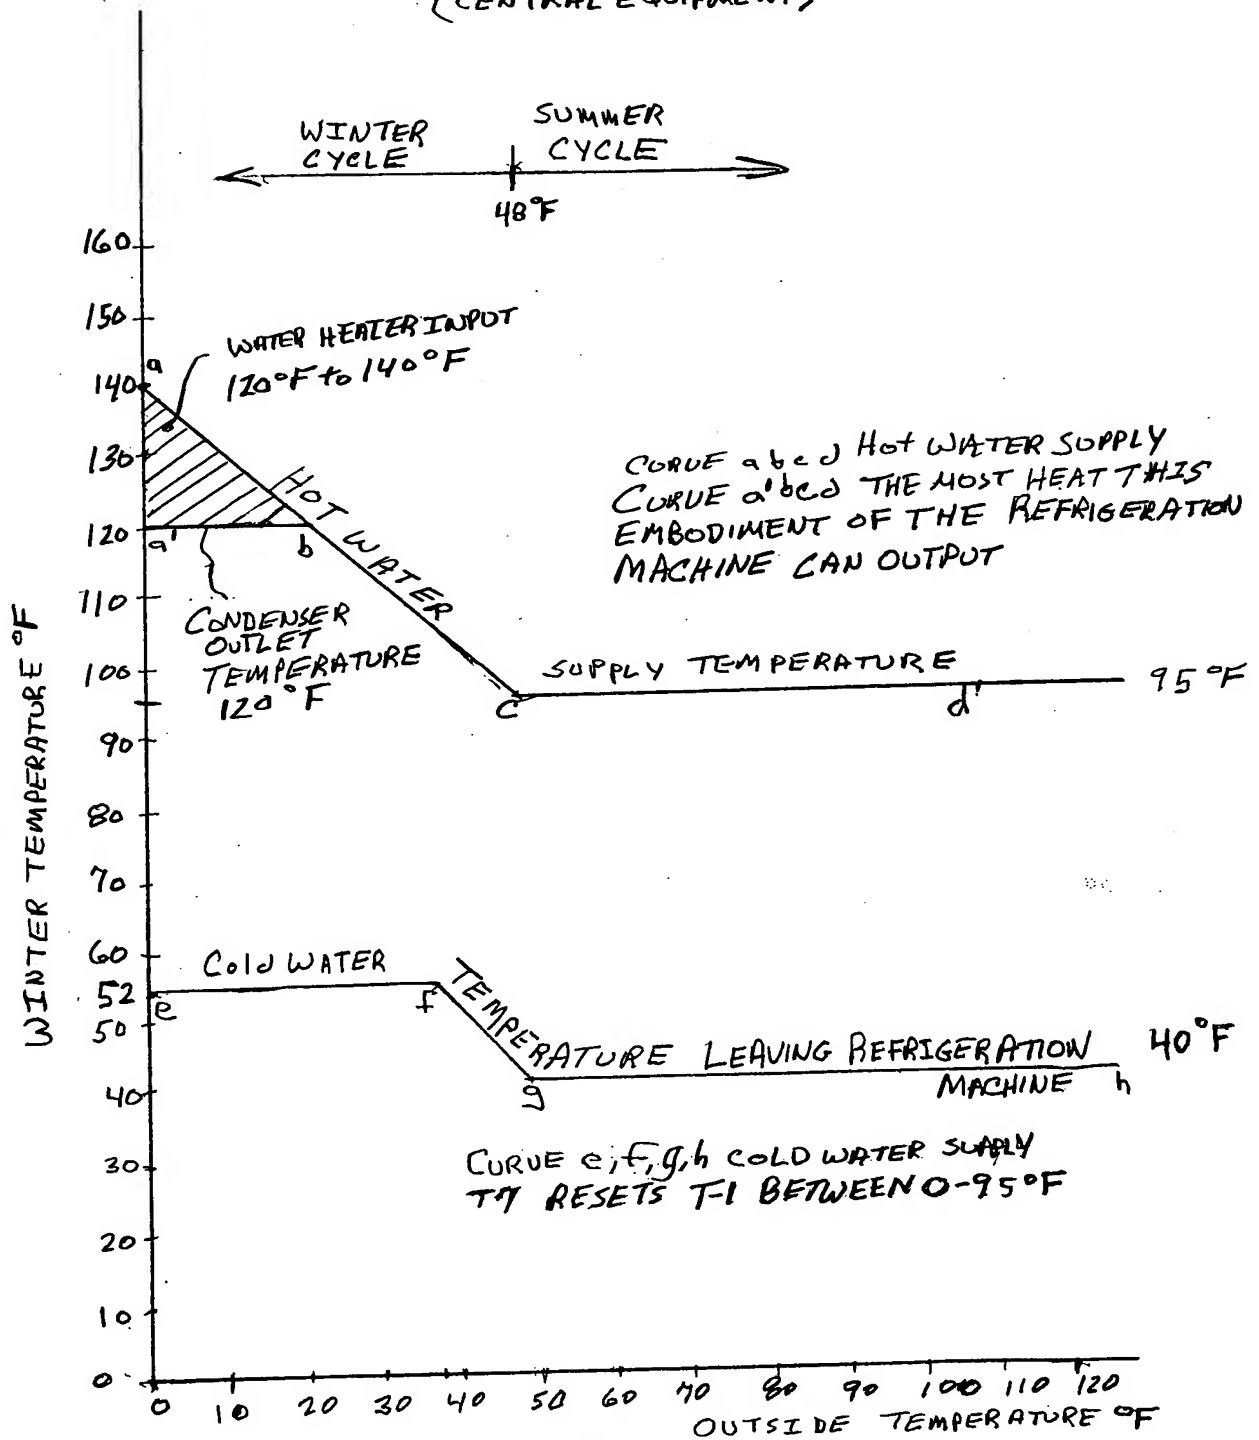 (CENTRAL EQUIPMENT)
WINTER
CYCLE
SUMMER
CYCLE
48°F
160
150
140
130
120
110
100
90
80
70
60
52
50
40
30
20
10
0
WINTER TEMPERATURE °F
a
WATER HEATER INPUT
120°F to 140°F
a'
b
HOT WATER
CONDENSER
OUTLET
TEMPERATURE
120°F
CURVE abcd HOT WATER SUPPLY
CURVE a'bcd THE MOST HEAT THIS
EMBODIMENT OF THE REFRIGERATION
MACHINE CAN OUTPUT
SUPPLY TEMPERATURE
95°F
c
d'
Cold WATER
e
f
TEMPERATURE LEAVING REFRIGERATION
MACHINE
40°F
g
h
CURVE e,f,g,h COLD WATER SUPPLY
T7 RESETS T-1 BETWEEN 0-95°F
0 10 20 30 40 50 60 70 80 90 100 110 120
OUTSIDE TEMPERATURE °F